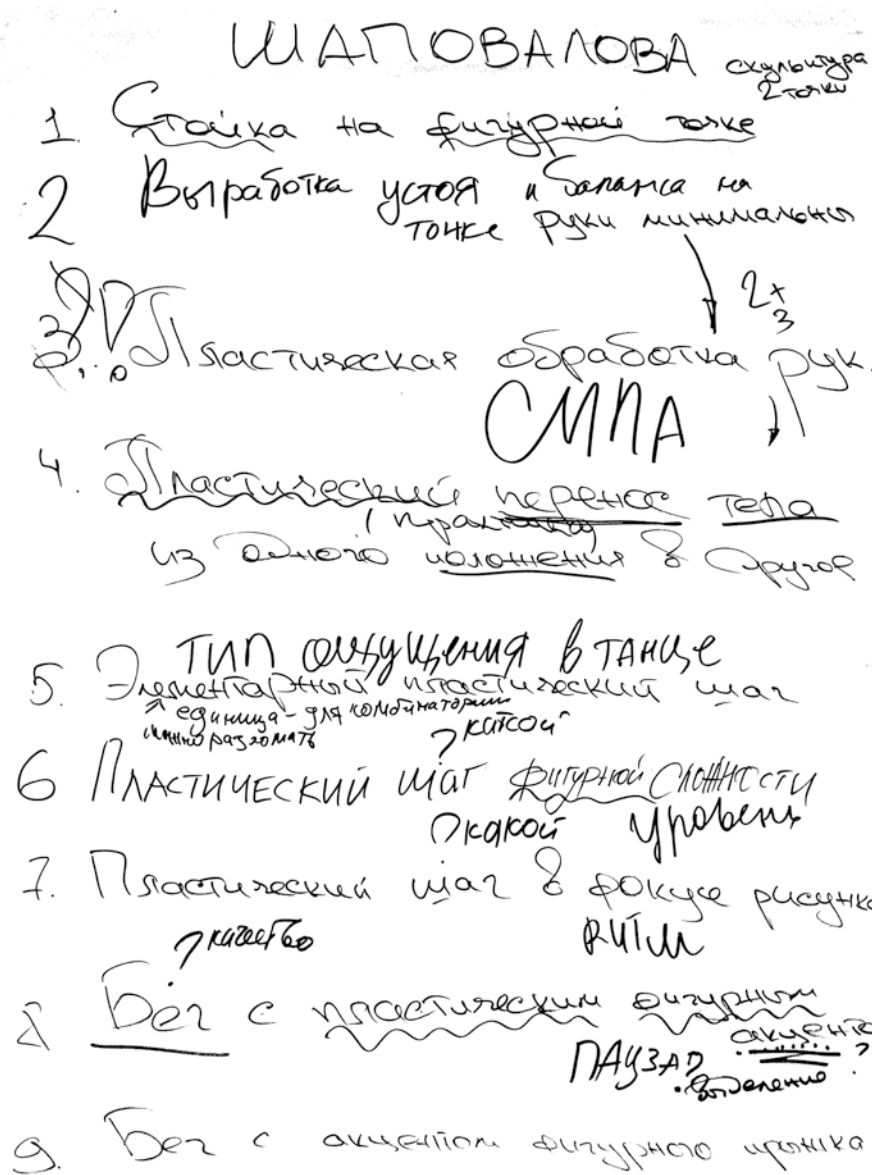 ШАПОВАЛОВА
скульптура
2 точки
1. Стойка на фигурной точке
2 Выработка устоя и баланса на
точке руки минимальны
2х
3
3. Пластическая обработка рук.
СМПА
4. Пластический перенос тела
(практика)
из одного положения в другое
ТИП ощущения в танце
5. Элементарный пластический шаг
единица - для комбинаторики
можно разломать
? какой
6 Пластический шаг фигурной сложности
? какой уровень
7. Пластический шаг в фокусе рисунка
? качество РИТМ
8 Бег с пластическим фигурным
акценто
ПАУЗА? выделение ?
9. Бег с акцентом фигурного прыжка